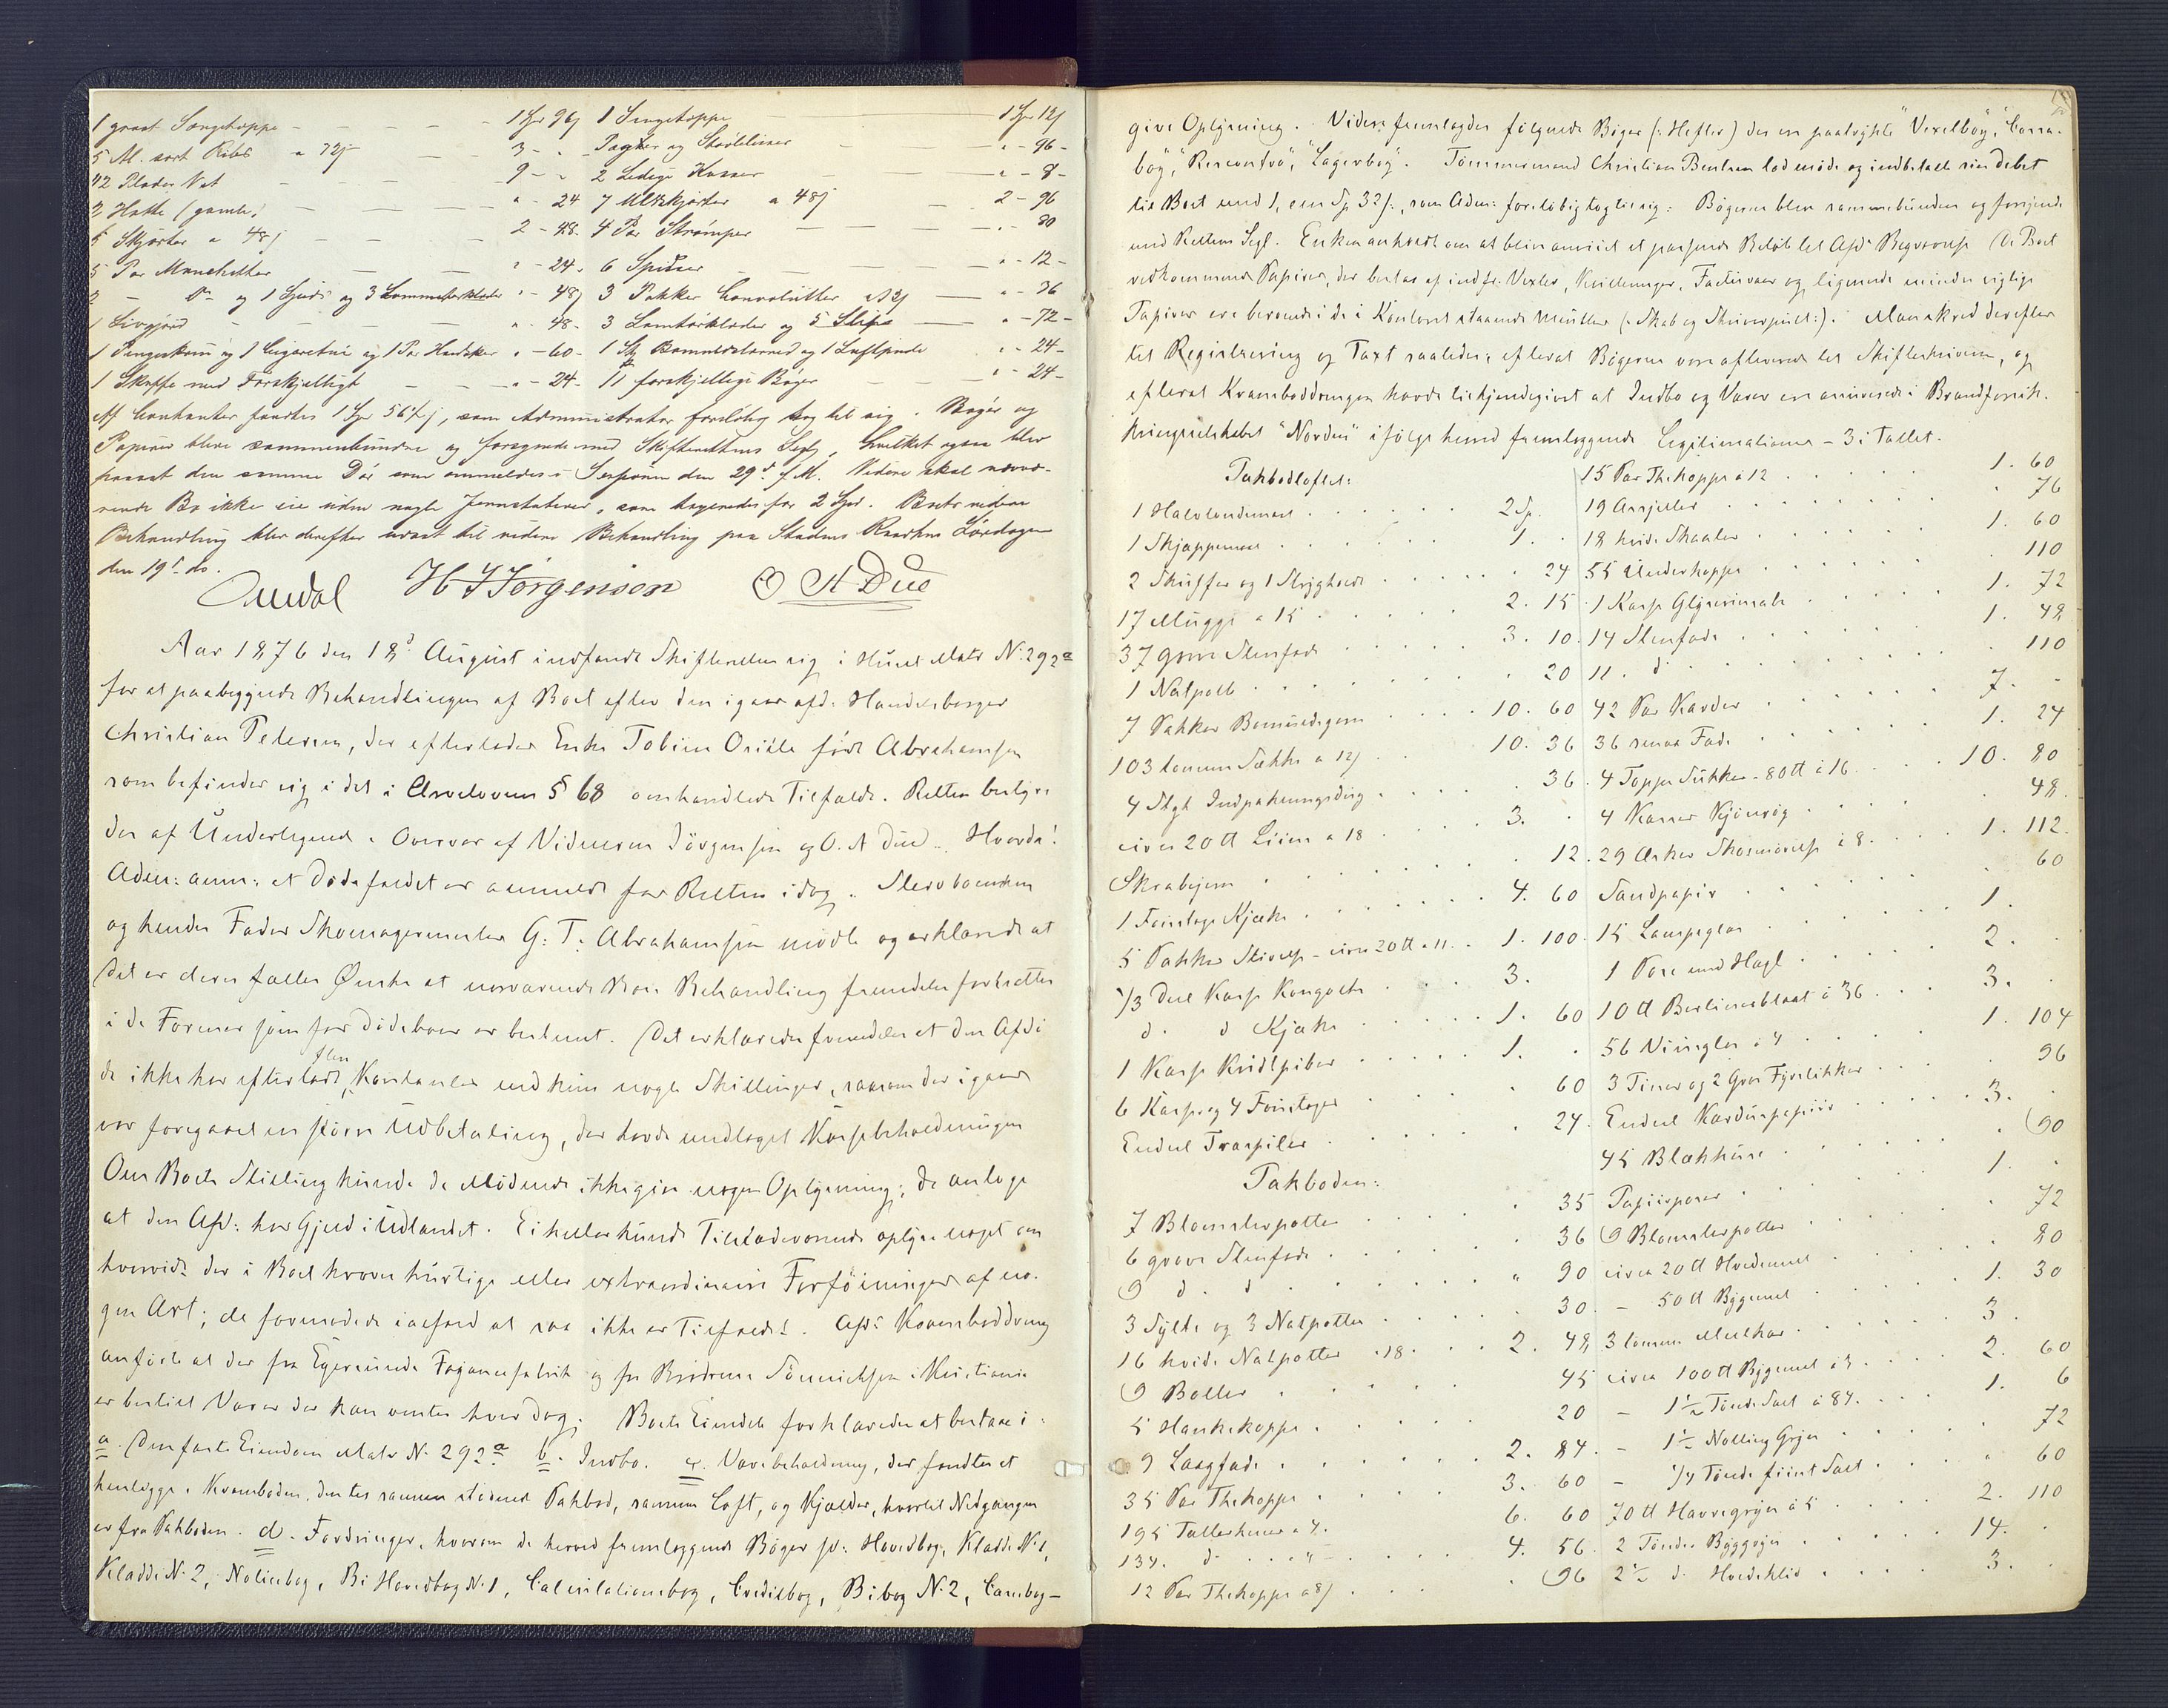 1 graat Sengeteppe 1 Spd 96 s
5 Al. sort Ribs a 72 s 3 -
42 Plader Vat 9 -
2 Hatte (gamle) - 24
5 Skjorter a 48 s 2 - 48
5 Par Manchetter - 24
1 Pengeskrin og 1 Cigaretui og 1 Par Handsker - 60
1 Skuffe med Forskjelligt - 24
1 Sengeteppe 1 Spd 12 s
- 96
2 Ledige Kasser - 8
7 Uldskjorter a 48 s 2 - 96
4 Par Strømper - 80
6 - 12
3 Pakker Convolutter - 36
3 Lomtørklæder og 5 Slips - 72
1 Stk Bomuldslærred og 1 - 24
11 forskjellige Bøger - 24
Af Contanter fandtes 1 Spd 56 s, som Administrator foreløbig tog til sig. Bøger og
Papirer bleve sammenbundne og forseglede med Skifterettens Segl, hvilket ogsaa blev
den samme Dør som ommeldes i Sessionen den 29d f. M. Videre skal nærvæ-
rende Bo ikke eie uden nogle Jernstativer, som for 2 Spd. Boets videre
Behandling blev derefter udsat til videre Behandling paa Stadens Raadhus Lørdagen
den 19d ds.
Omdal H J Jørgensen O A Due
Aar 1876 den 18d August indfandt Skifteretten sig i Huset Matr N. 292a
for at paabegynde Behandlingen af Boet efter den igaar afd. Handelsborger
Christian Petersen, der efterlader Enke Tobine Osille født Abrahamsen
som befinder sig i det i Arveloven § 68 omhandlede Tilfælde. Retten besty-
des af Undertegnede i Overvær af Vidnerne Jörgensen og O. A Due. Hvorda:
Adm: anm: at Dödsfaldet er anmeldt for Retten idag. Stervboenken
og hendes Fader Skomagermester G: T: Abrahamsen mödte og erklærede at
det er deres fælles Ønske at nærværende Boes Behandling fremdeles fortsættes
i de Former som for Dödsboer er bestemt. Det erklæredes fremdeles at den Afdö-
de ikke har efterladt flere Kontanter end kun nogle Skillinger, saasom der igaar
var foregaaet en större Udbetaling, der havde medtaget Kassebeholdningen
Om Boets Stilling kunde de Mödende ikke give nogen Oplysning; de antoge
at den Afd: har Gjeld i Udlandet. Ei heller kunde Tilstedeværende oplyse noget om
hvorvidt der i Boet kræves hurtige eller extraordinaire Forföininger af no-
gen Art; de formodede ialfald at saa ikke er Tilfældet. Afds Krambodsvend
anförte at der fra Egersunds Fayancefabrik og fra Brødrene Sönnichsen i Kristiania
er bestilt Varer der kan ventes hver Dag. Boets Eiendele forklaredes at bestaae i:
a. Den faste Eiendom Matr N. 292a b. Indbo. c. Varebeholdning, der fandtes at
henligge i Kramboden, den tilsammen stödende Pakbod, sammes Loft, og Kjælder, hvortil Nedgangen
er fra Pakboden. d. Fordringer, hvorom de herved fremlægges Bøger sv: Hovedbog, Kladde N. 1,
Kladde N. 2, Noticebog, Bi Hovedbog N. 1, Calculationsbog, Creditbog, Bibog N. 2, Cassebog —
give Oplysning. Videre fremlagdes følgende Bøger (: Hefter) der ere paatrykte "Vexelbog", "Cassa-
bog", "Rescontro", "Lagerbog". Tömmermand Christian Bentsen lod möde og indbetale sin Debet
til Boet med 1, een Sp 32 s:, som Adm: foreløbig tog til sig: Bøgerne blev sammenbundne og forsynede
med Rettens Segl. Enken anholdt om at blive anviist et passende Beløb til Afds Begravelse. De Boet
vedkommende Papirer, der bestaa af indfr. Vexler, Kvitteringer, Facturaer og lignende mindre vigtige
Papirer ere beroende i de i Kontoret staaende Meubler (: Skab og Skriverpult:). Man skred derefter
til Registrering og Taxt saaledes, efterat Bøgerne vare afleverede til Skifteskriveren, og
efterat Krambodsvenden havde tilkjendegivet at Indbo og Varer ere assurerede i Brandforsik-
kringsselskabet "Norden" ifölge hermed fremlæggende Legitimationer - 3 i Tallet.
Pakbodloftet:
1 Halvtöndemaal 2 Sp.
1 Skjæppemaal 1.
2 Skuffer og 1 24
17 Mugger a 15 2. 15
37 grove Steenfade 3. 10
1 Natpotte 20
7 Pakker Bomuldsgarn 10. 60
103 tomme Sække a 12 s 10. 36
4 Stk Indpakningsdug 36
circa 20 ℔ Liim a 18 3.
Skrabejern 12
1 Foustage Kjæx 4. 60
5 Pakker Stivelse - circa 20 ℔ a 11 1. 100
1/3 Deel Kasse Kongothe 3.
d. d Kjæx 1. 60
1 Kasse Kridtpiber 1.
6 Kasser og 4 Foustager 60
Endeel Træspiler 24
Pakboden:
7 Blomsterpotter 35
6 grove Steenfade 36
9 d. d. 90
3 Sylte og 3 Natpotter 30
16 hvide Natpotter a 18 2. 48
9 Boller 45
5 Hankekopper 20
9 Laagfade 2. 84
35 Par Thekopper 3. 60
195 Tallerkener a 4 6. 60
134 d. 4. 56
12 Par Thekopper a 8 s 96
15 Par Thekopper a 12 1. 60
19 Assjetter 76
18 hvide Skaaler 1. 60
55 Underkopper 110
1 Kasse Glycerinsæbe 1. 72
14 Steenfade 1. 48
11 d. 110
42 Par Karder 7.
36 smaa Fade 1. 24
4 Toppe Sukker - 80 ℔ a 16 10. 80
4 Kasser Kjönrög 48
29 Æsker Skosmörelse a 8 1. 112
Sandpapir 60
15 Lampeglas 1.
1 Pose med Hagl 2.
10 ℔ Berlinerblaat a 36 3.
56 Viinglas a 4 1. 104
3 Tiner og 2 Gros Fyrstikker 96
Endeel Karduspapiir 3.
45 Blækhuse 90
Papiirposer 1.
9 Blomsterpotter 72
circa 20 ℔ Hvedemel 80
- 50 ℔ Bygmel 1. 30
3 tomme Meelkar 3
circa 100 ℔ Bygmel a 3 2. 60
- 1½ Tönde Salt a 84 1. 6
- 1½ Gryn 72
- ¼ Tönde fiint Salt 60
70 ℔ Havregryn a 5 2. 110
2 Tönder Byggryn 14.
2½ d. Hvedeklid 3.